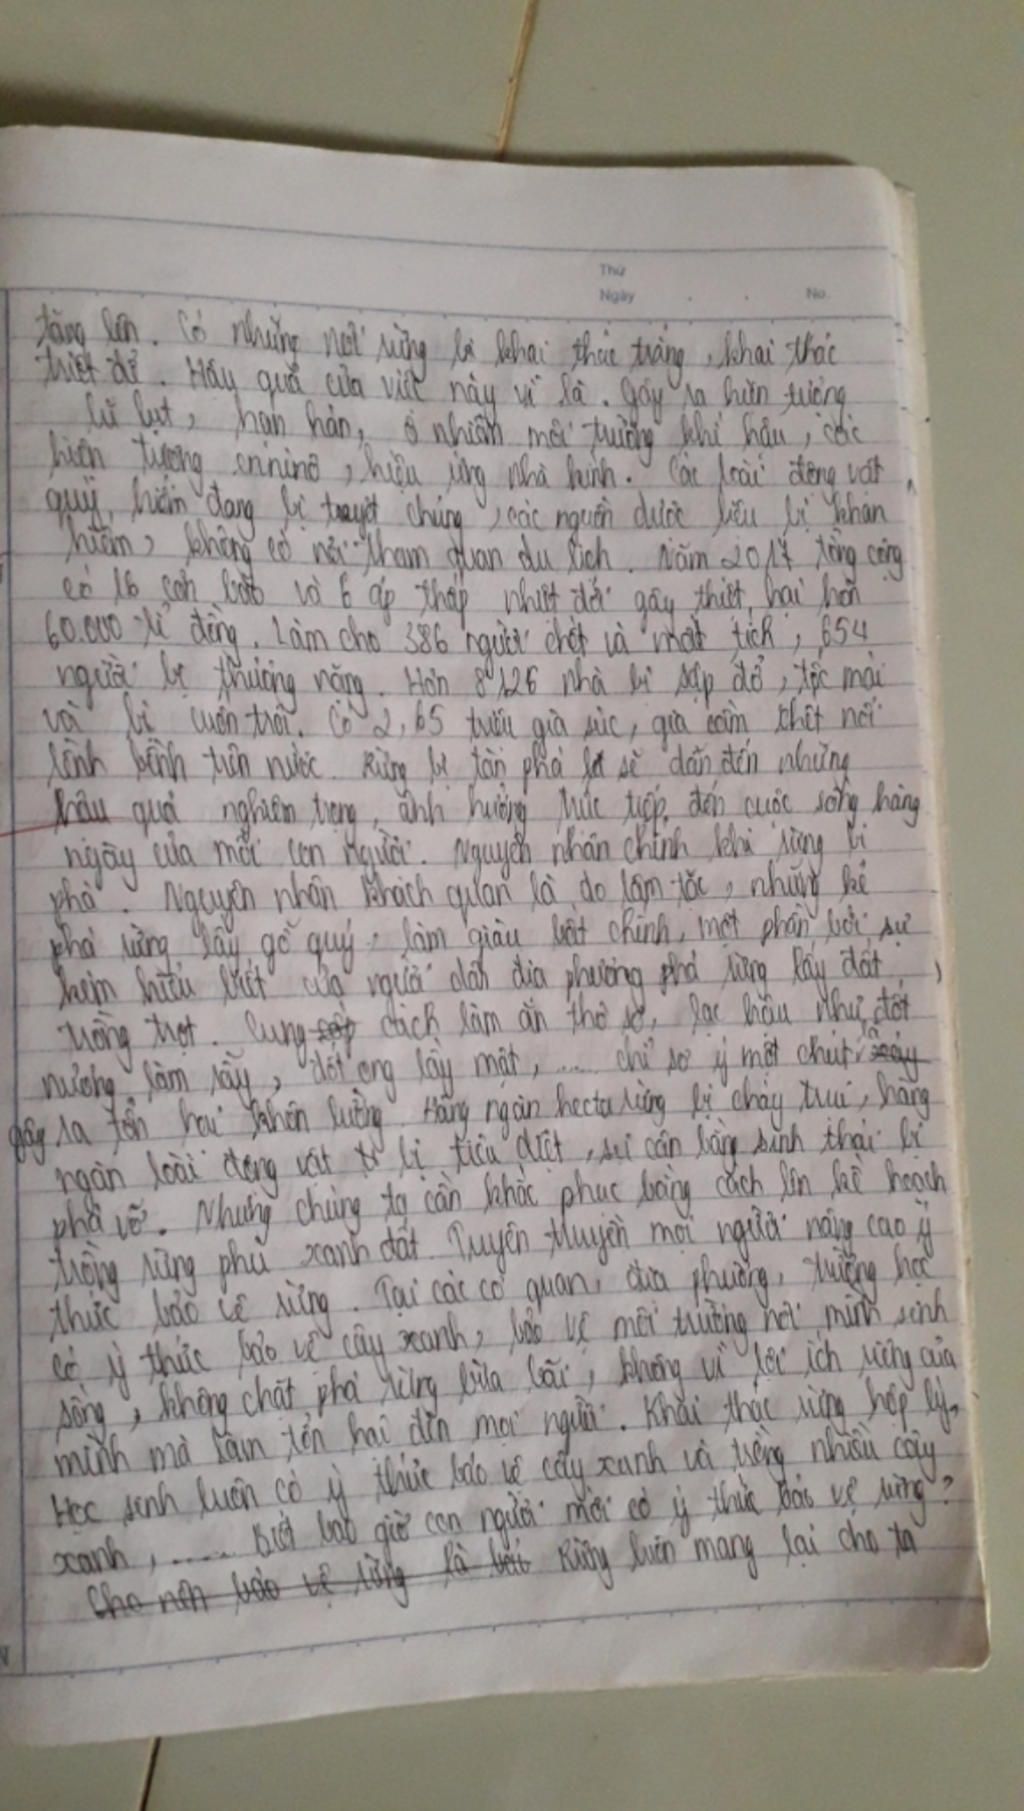 Thứ
Ngày No.
tăng lên. Có những nơi rừng bị khai thác trắng, khai thác
triệt để. Hậu quả của việc này vì là. Gây ra hiện tượng
lũ lụt, hạn hán, ô nhiễm môi trường khí hậu, các
hiện tượng enninô, hiệu ứng nhà kính. Các loài động vật
quý, hiếm đang bị tuyệt chủng, các nguồn dược liệu bị khan
hiếm, không có nơi tham quan du lịch. Năm 2017 tổng cộng
có 16 cơn bão và 6 áp thấp nhiệt đới gây thiệt hại hơn
60.000 tỉ đồng. Làm cho 386 người chết và mất tích, 654
người bị thương nặng. Hơn 8126 nhà bị sập đổ, tốc mái
và bị cuốn trôi. Có 2,65 triệu gia súc, gia cầm chết nổi
lềnh bềnh trên nước. Rừng bị tàn phá sẽ dẫn đến những
hậu quả nghiêm trọng, ảnh hưởng trực tiếp đến cuộc sống hàng
ngày của mỗi con người. Nguyên nhân chính khi rừng bị
phá. Nguyên nhân khách quan là do lâm tặc, những kẻ
phá rừng lấy gỗ quý làm giàu bất chính, một phần bởi sự
kém hiểu biết của người dân địa phương phá rừng lấy đất
trồng trọt. Cùng cách làm ăn thô sơ, lạc hậu như đốt
nương làm rẫy, đốt ong lấy mật, ..... chỉ sơ ý một chút
gây ra tổn hại khôn lường. Hàng ngàn hecta rừng bị cháy trụi, hàng
ngàn loài động vật bị tiêu diệt, sự cân bằng sinh thái bị
phá vỡ. Nhưng chúng ta cần khắc phục bằng cách lên kế hoạch
trồng rừng phủ xanh đất. Truyên truyền mọi người nâng cao ý
thức bảo vệ rừng. Tại các cơ quan, địa phương, trường học
có ý thức bảo vệ cây xanh, bảo vệ môi trường nơi mình sinh
sống, không chặt phá rừng bừa bãi, không vì lợi ích riêng của
mình mà làm tổn hại đến mọi người. Khai thác rừng hợp lý.
Học sinh luôn có ý thức bảo vệ cây xanh và trồng nhiều cây
xanh, ..... Biết bao giờ con người mới có ý thức bảo vệ rừng?
Cho nên bảo vệ rừng là Rừng luôn mang lại cho ta